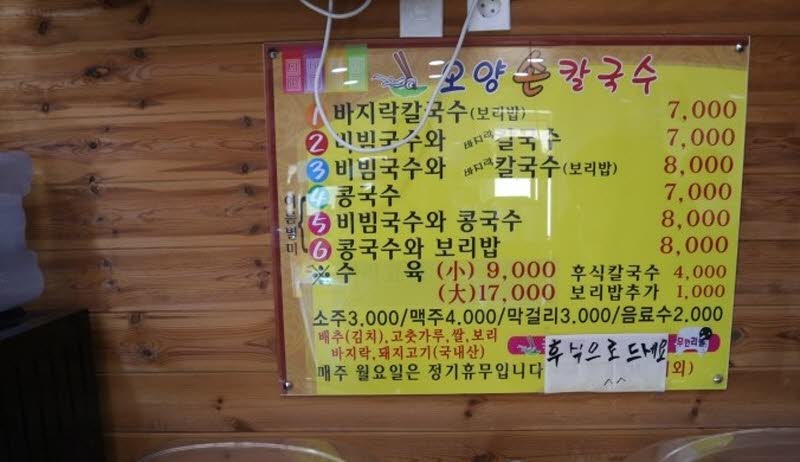 오양손칼국수
1 바지락칼국수(보리밥) 7,000
2 비빔국수와 바지락칼국수 7,000
3 비빔국수와 바지락칼국수(보리밥) 8,000
여름별미
4 콩국수 7,000
5 비빔국수와 콩국수 8,000
6 콩국수와 보리밥 8,000
※수 육 (小) 9,000 후식칼국수 4,000
(大)17,000 보리밥추가 1,000
소주3,000/맥주4,000/막걸리3,000/음료수2,000
배추(김치),고춧가루,쌀,보리
바지락,돼지고기(국내산)
무한리필
후식으로 드세요
^^
매주 월요일은 정기휴무입니다 외)